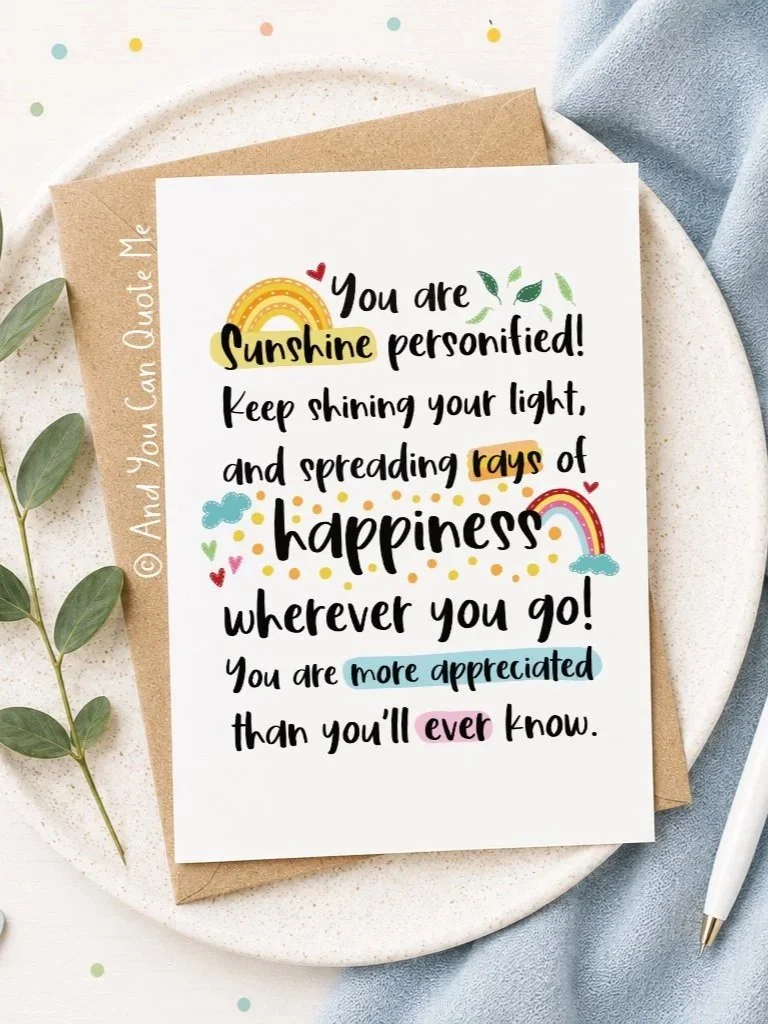 You are
Sunshine personified!
Keep shining your light,
and spreading rays of
happiness
wherever you go!
You are more appreciated
than you'll ever know.
© And You Can Quote Me